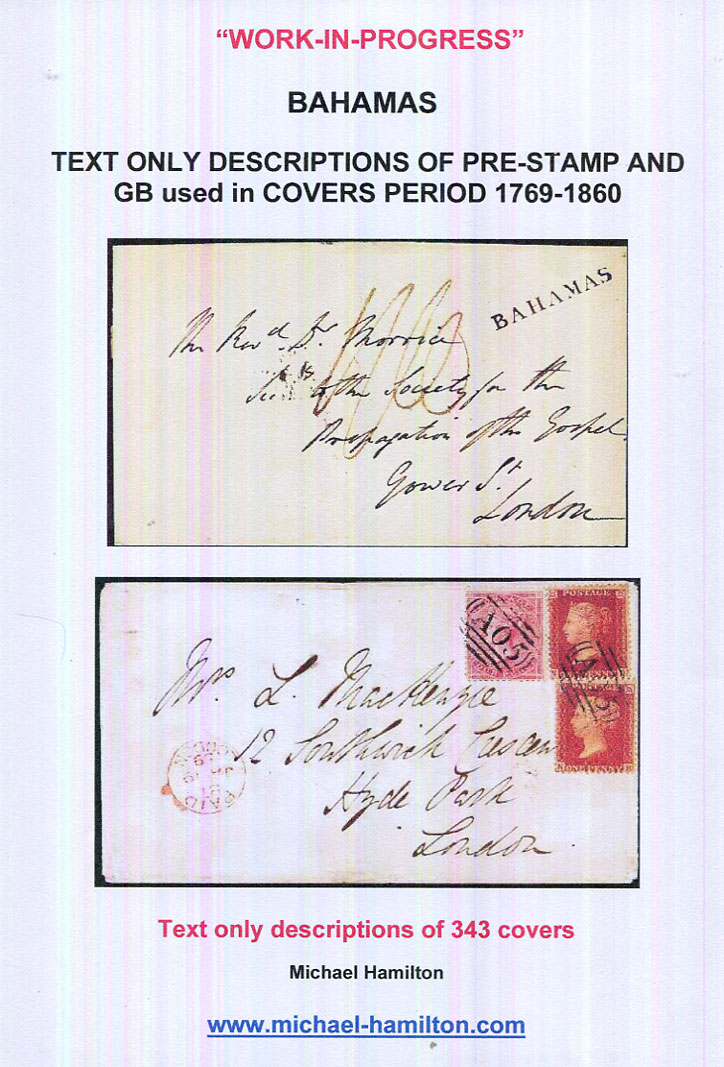 “WORK-IN-PROGRESS”
BAHAMAS
TEXT ONLY DESCRIPTIONS OF PRE-STAMP AND
GB used in COVERS PERIOD 1769-1860
BAHAMAS
The Revd Dr Morrice
to the Society for the
Propagation of the Gospel
Gower St
London
A05
POSTAGE
Mrs L. MacKenzie
A05
12 Southwick Crescen
ONE PENNY
Hyde Park
London
PAID
Text only descriptions of 343 covers
Michael Hamilton
www.michael-hamilton.com